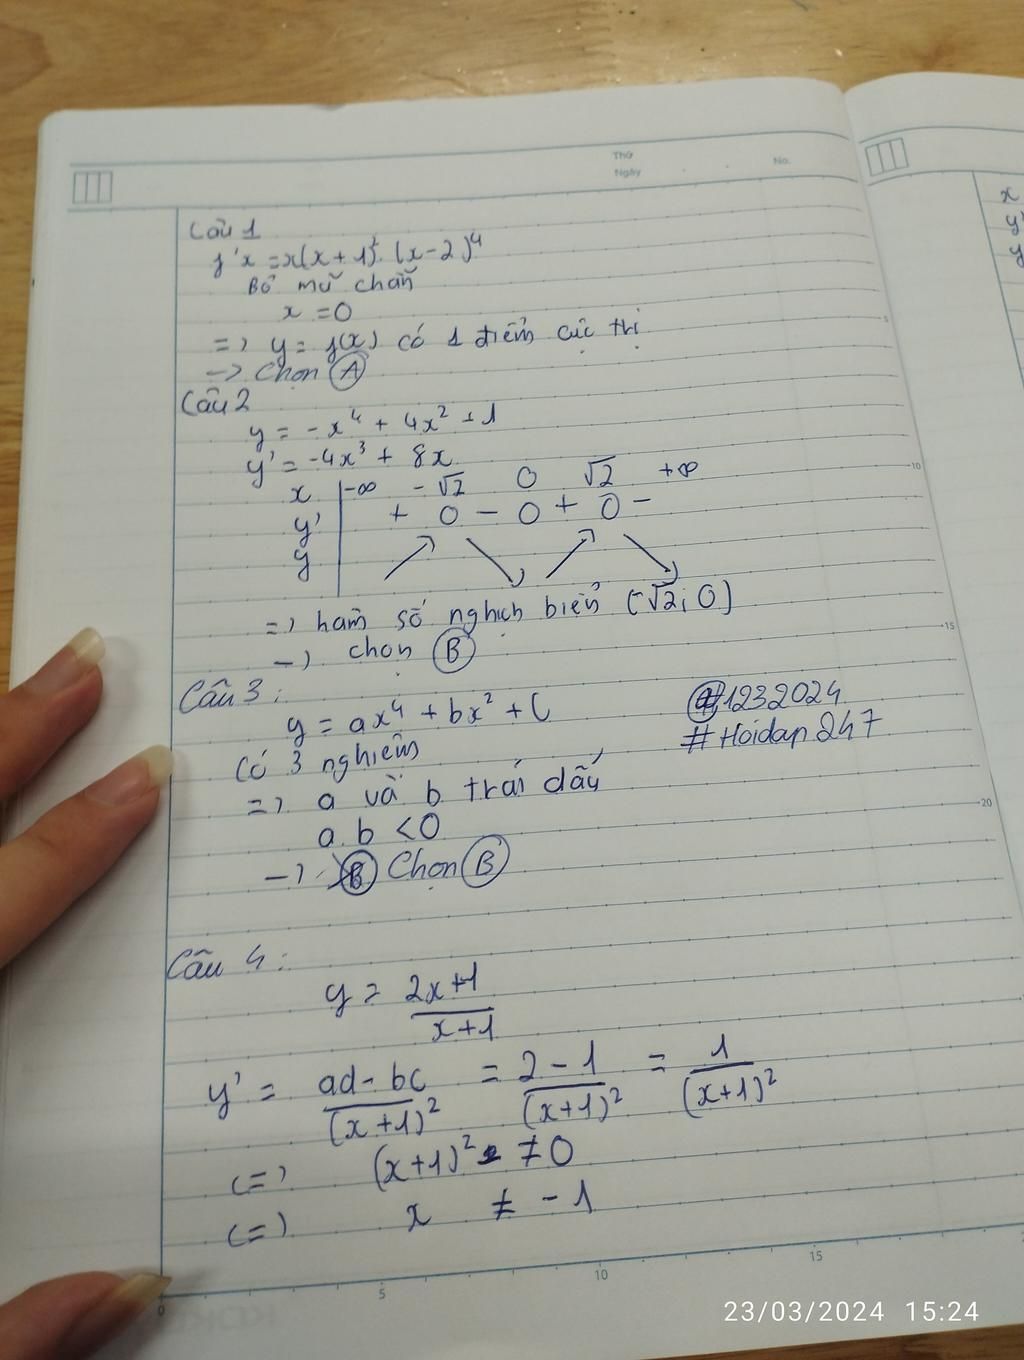 Thứ
Ngày
No.
Câu 1
f'x = x(x+1)². (x-2)⁴
Bỏ mũ chẵn
x = 0
=> y = f(x) có 1 điểm cực trị
-> Chọn A
Câu 2
y = -x⁴ + 4x² + 1
y' = -4x³ + 8x
x -∞ -√2 0 √2 +∞
y' + 0 - 0 + 0 -
y
=> hàm số nghịch biến (-√2; 0)
-> chọn B
Câu 3:
@1232024
y = ax⁴ + bx² + C
#Hoidap247
Có 3 nghiệm
=> a và b trái dấu
a.b < 0
-> B Chọn B
Câu 4:
y = 2x+1 / x+1
y' = ad-bc / (x+1)² = 2-1 / (x+1)² = 1 / (x+1)²
<=> (x+1)² ≠ 0
<=> x ≠ -1
x
y'
y
5
10
15
20
0 5 10 15
23/03/2024 15:24